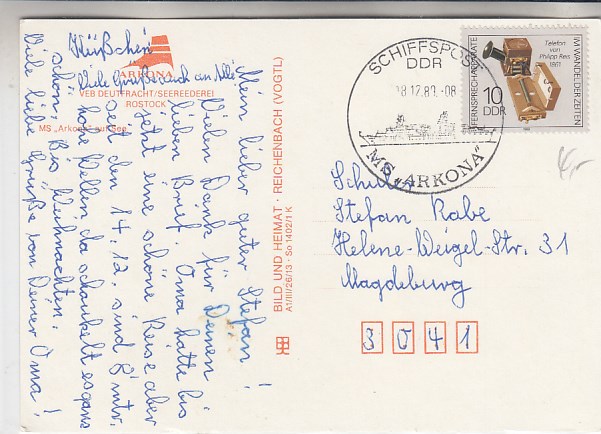 Mein lieber guter Stefan!
Vielen Dank für Deinen
lieben Brief. Oma hätte bis
jetzt eine schöne Reise aber
seit den 14.12. sind 2 mtr.
hohe Wellen, da schaukelt es ganz
schön. Bis Weihnachten.
Viele liebe Grüße von Deiner Oma!
Küßchen
Viele Grüße auch an Alle
ARKONA
VEB DEUTFRACHT/SEEREEDEREI
ROSTOCK
MS "Arkona" auf See
BILD UND HEIMAT · REICHENBACH (VOGTL)
A1/III/26/13 · So 1402/1 K
SCHIFFSPOST
DDR
18.12.89.-08
MS "ARKONA"
FERNSPRECHAPPARATE
IM WANDEL DER ZEITEN
Telefon
von
Philipp Reis
1861
10
DDR
Schüler
Stefan Rabe
Helene-Weigel-Str. 31
Magdeburg
3041